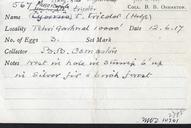 567 tricolor. COLL. B. B. OSMASTON.
Name Cyornis t. tricolor (Hodgs)
Locality Tehri Garhwal 10000' Date 12.6.17
No. of Eggs 3. Set Mark
Collector B.B. Osmaston
Notes nest in hole in stump 6' up
in Silver fir & birch forest